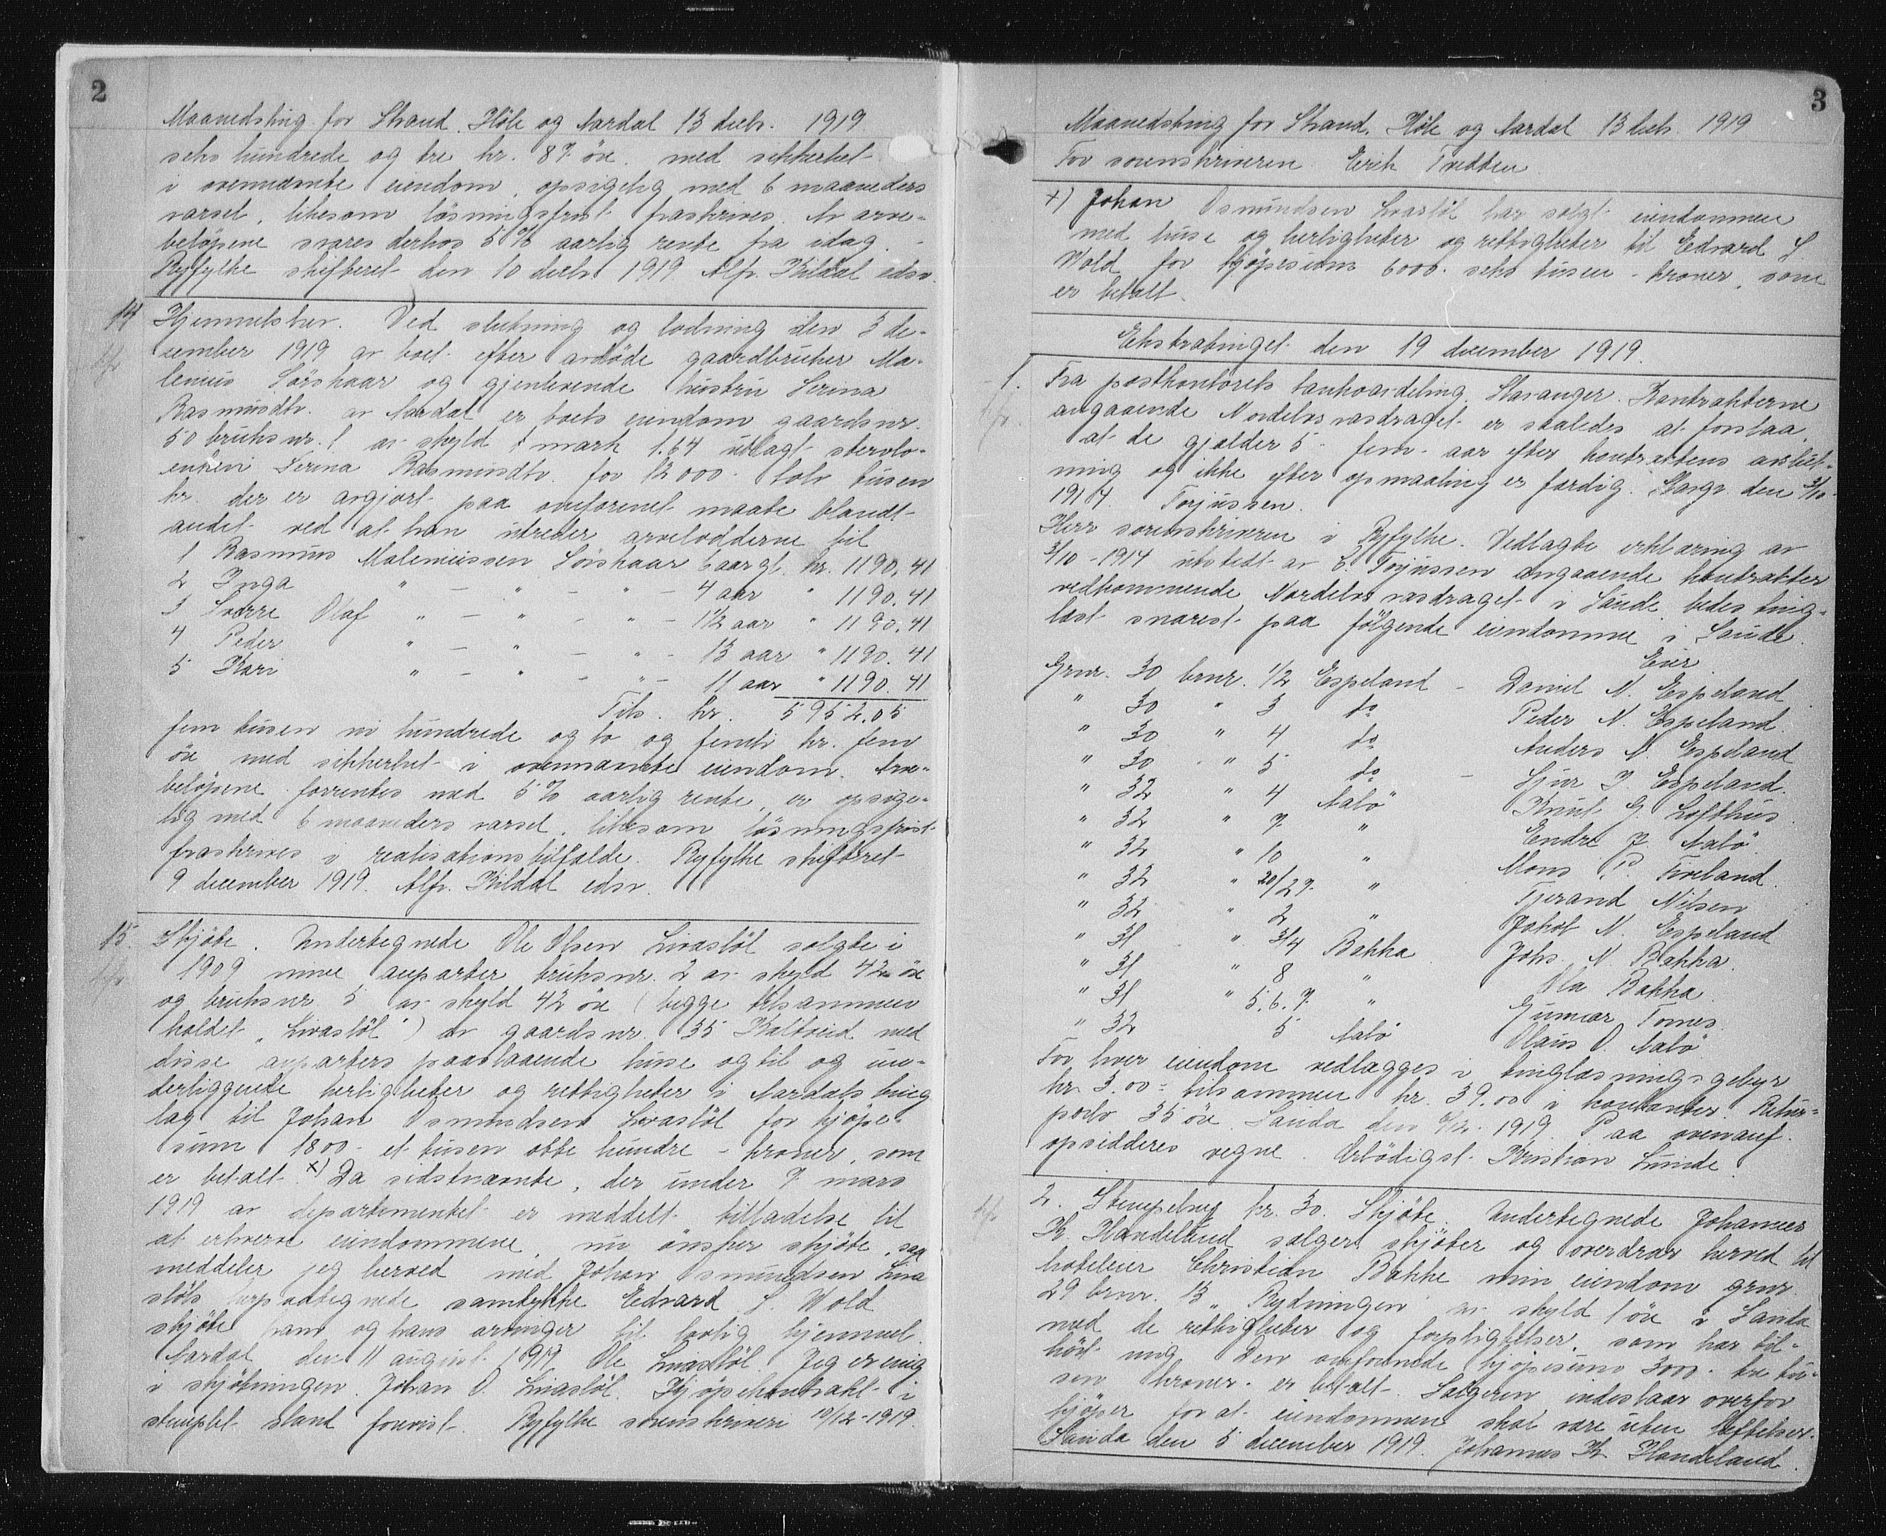 2
Maanedsting for Strand, Höle og Aardal 13 decbr. 1919
seks hundrede og tre kr. 87 öre med sikkerhet
i ovennævnte eiendom, opsigelig med 6 maaneders
varsel, likesom løsningsfrist fraskrives. Av arve-
beløpene svares derhos 5 % aarlig rente fra idag. -
Ryfylke skifteret den 10 decbr 1919 Alfr. Kildal edsv.
14 Hjemmelsbrev. Ved slutning og lodning den 3 de-
cember 1919 av boet efter avdöde gaardbruker Ma-
lenius Sörskaar og gjenlevende hustru Serina
Rasmusdtr. av Aardal er boets eiendom gaardsnr.
50 bruksnr. 1 av skyld mark 1.64 utlagt stervbo-
enken Serina Rasmusdtr. for 12000 tolv tusen
kr. der er avgjort paa omforenet maate blandt
andet ved at hun utreder arvelodderne til
1 Rasmus Maleniussen Sörskaar 6 aar gl. kr. 1190,41
2 Inga " — " — " — 4 aar " 1190.41
3 Sverre Olaf " — " — " — 1½ aar " 1190.41
4 Peder " — " — " — 13 aar " 1190.41
5 Kari " — " — " — 11 aar " 1190.41
Tils. kr. 5952.05
fem tusen ni hundrede og to og femti kr. fem
öre med sikkerhet i ovennævnte eiendom. Arve-
beløpene forrentes med 5 % aarlig rente, er opsige-
lig med 6 maaneders varsel, likesom løsningsfrist
fraskrives i realisationstilfælde. Ryfylke skifteret
9 december 1919. Alfr. Kildal edsv.
15. Skjöte. Undertegnede Ole Olsen Livastöl solgte i
1909 mine anparter bruksnr. 2 av skyld 42 öre
og bruksnr 5 av skyld 42 öre (begge tilsammen
kaldet „Livastöl") av gaardsnr. 35 Kaltveid med
disse anparters paastaaende huse og til og un-
derliggende herligheter og rettigheter i Aardals ting
lag til Johan Osmundsen Livastöl for kjöpe-
sum 1800 et tusen otte hundre - kroner, som
er betalt. x) Da sidstnævnte, der under 7 mars
1919 av departementet er meddelt tilladelse til
at erhverve eiendommene, nu ønsker skjöte, saa
meddeler jeg herved med Johan Osmundsen Liva
stöls herpaategnede samtykke Edvard S. Wold
skjöte ham og hans arvinger til lovlig hjemmel.
Aardal den 11 august 1919. Ole Livastöl. Jeg er enig
i skjötningen. Johan O. Livastöl. Kjöpekontrakt i
stemplet stand forevist. Ryfylke sorenskriveri 12/12-1919.
3
Maanedsting for Strand, Höle og Aardal 13 decbr. 1919
For sorenskriveren Eirik Tvedten
x) Johan Osmundsen Livastöl har solgt eiendommen
med huse og herligheter og rettigheter til Edvard S
Wold for kjöpesum 6000 seks tusen - kroner, som
er betalt.
Ekstratinget den 19 december 1919.
1. Fra postkontorets bankavdeling Stavanger. Kontrakterne
angaaende Nordelvs vasdraget er saaledes at forstaa,
at de gjælder 5 fem aar efter kontraktens avslut-
ning og ikke efter opmaaling er færdig. Stavgr. den 3/10-
1914 Torjussen.
Herr sorenskriveren i Ryfylke. Vedlagte erklæring av
3/10-1914 utstedt av E. Torjussen angaaende kontrakter
vedkommende Nordelvs vasdraget i Saude bedes ting-
læst snarest paa fölgende eiendomme i Saude.
Eier
Grnr. 30 brnr. 1/2 Espeland - Daniel N. Espeland
" 30 " 3 do Peder N. Espeland.
" 30 " 4 do Anders N. Espeland
" 30 " 5 do - Sjur J. Espeland.
" 32 " 4 Aabö Knut G. Lofthus
" 32 " 7 " Endre J. Aabö
" 32 " 10 " Mons P. Tveland.
" 32 " 20/27 " Tjerand Nilsen
" 32 " 2 " Jakob N. Espeland
" 31 " 3/4 Bakka Johs. N. Bakka.
" 31 " 8 " Ola Bakka
" 31 " 5.6.7 " Gunnar Tornes.
" 32 5 Aabö Olaus O. Aabö
For hver eiendom vedlægges i tinglæsningsgebyr
kr. 3.00 = tilsammen kr. 39.00 i kontanter. Retur-
porto 35 öre. Sauda den 6/12 1919. Paa ovenauf.
opsidderes vegne. Ærbödigst Kristian Lunde.
2. Stempelmrk kr. 30. Skjöte. Undertegnede Johannes
K. Handeland sælger skjöter og overdrar herved til
hoteleier Christian Bakke min eiendom grnr.
29 brnr. 13 „ Rydningen av skyld 1 öre i Sauda
med de rettigheter og forpligtelser, som har til-
hört mig. Den omforenede kjöpesum 3000 - tre tu-
sen kroner er betalt. Sælgeren indestaar overfor
kjöper for at eiendommen skal være uten heftelser.
Sauda den 5 december 1919. Johannes K. Handeland.